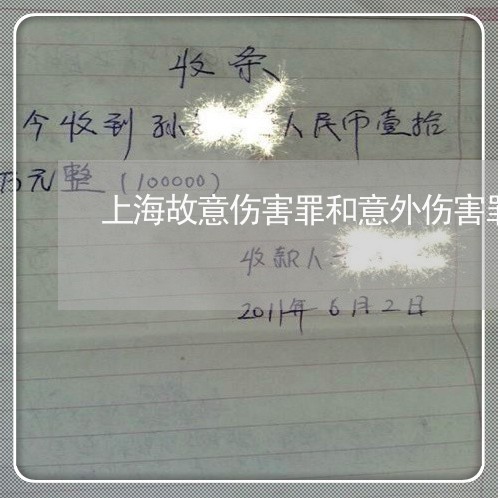 收条
今收到孙 人民币壹拾
万元整(100000)
上海故意伤害罪和意外伤害罪
收款人
2011年6月2日